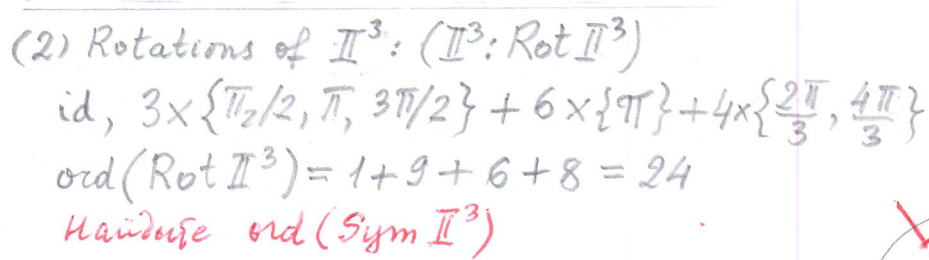 (2) Rotations of II³: (II³: Rot II³)
id, 3×{π/2, π, 3π/2} + 6×{π} + 4×{2π/3, 4π/3}
ord(Rot II³) = 1+9+6+8 = 24
Найдите ord(Sym II³)